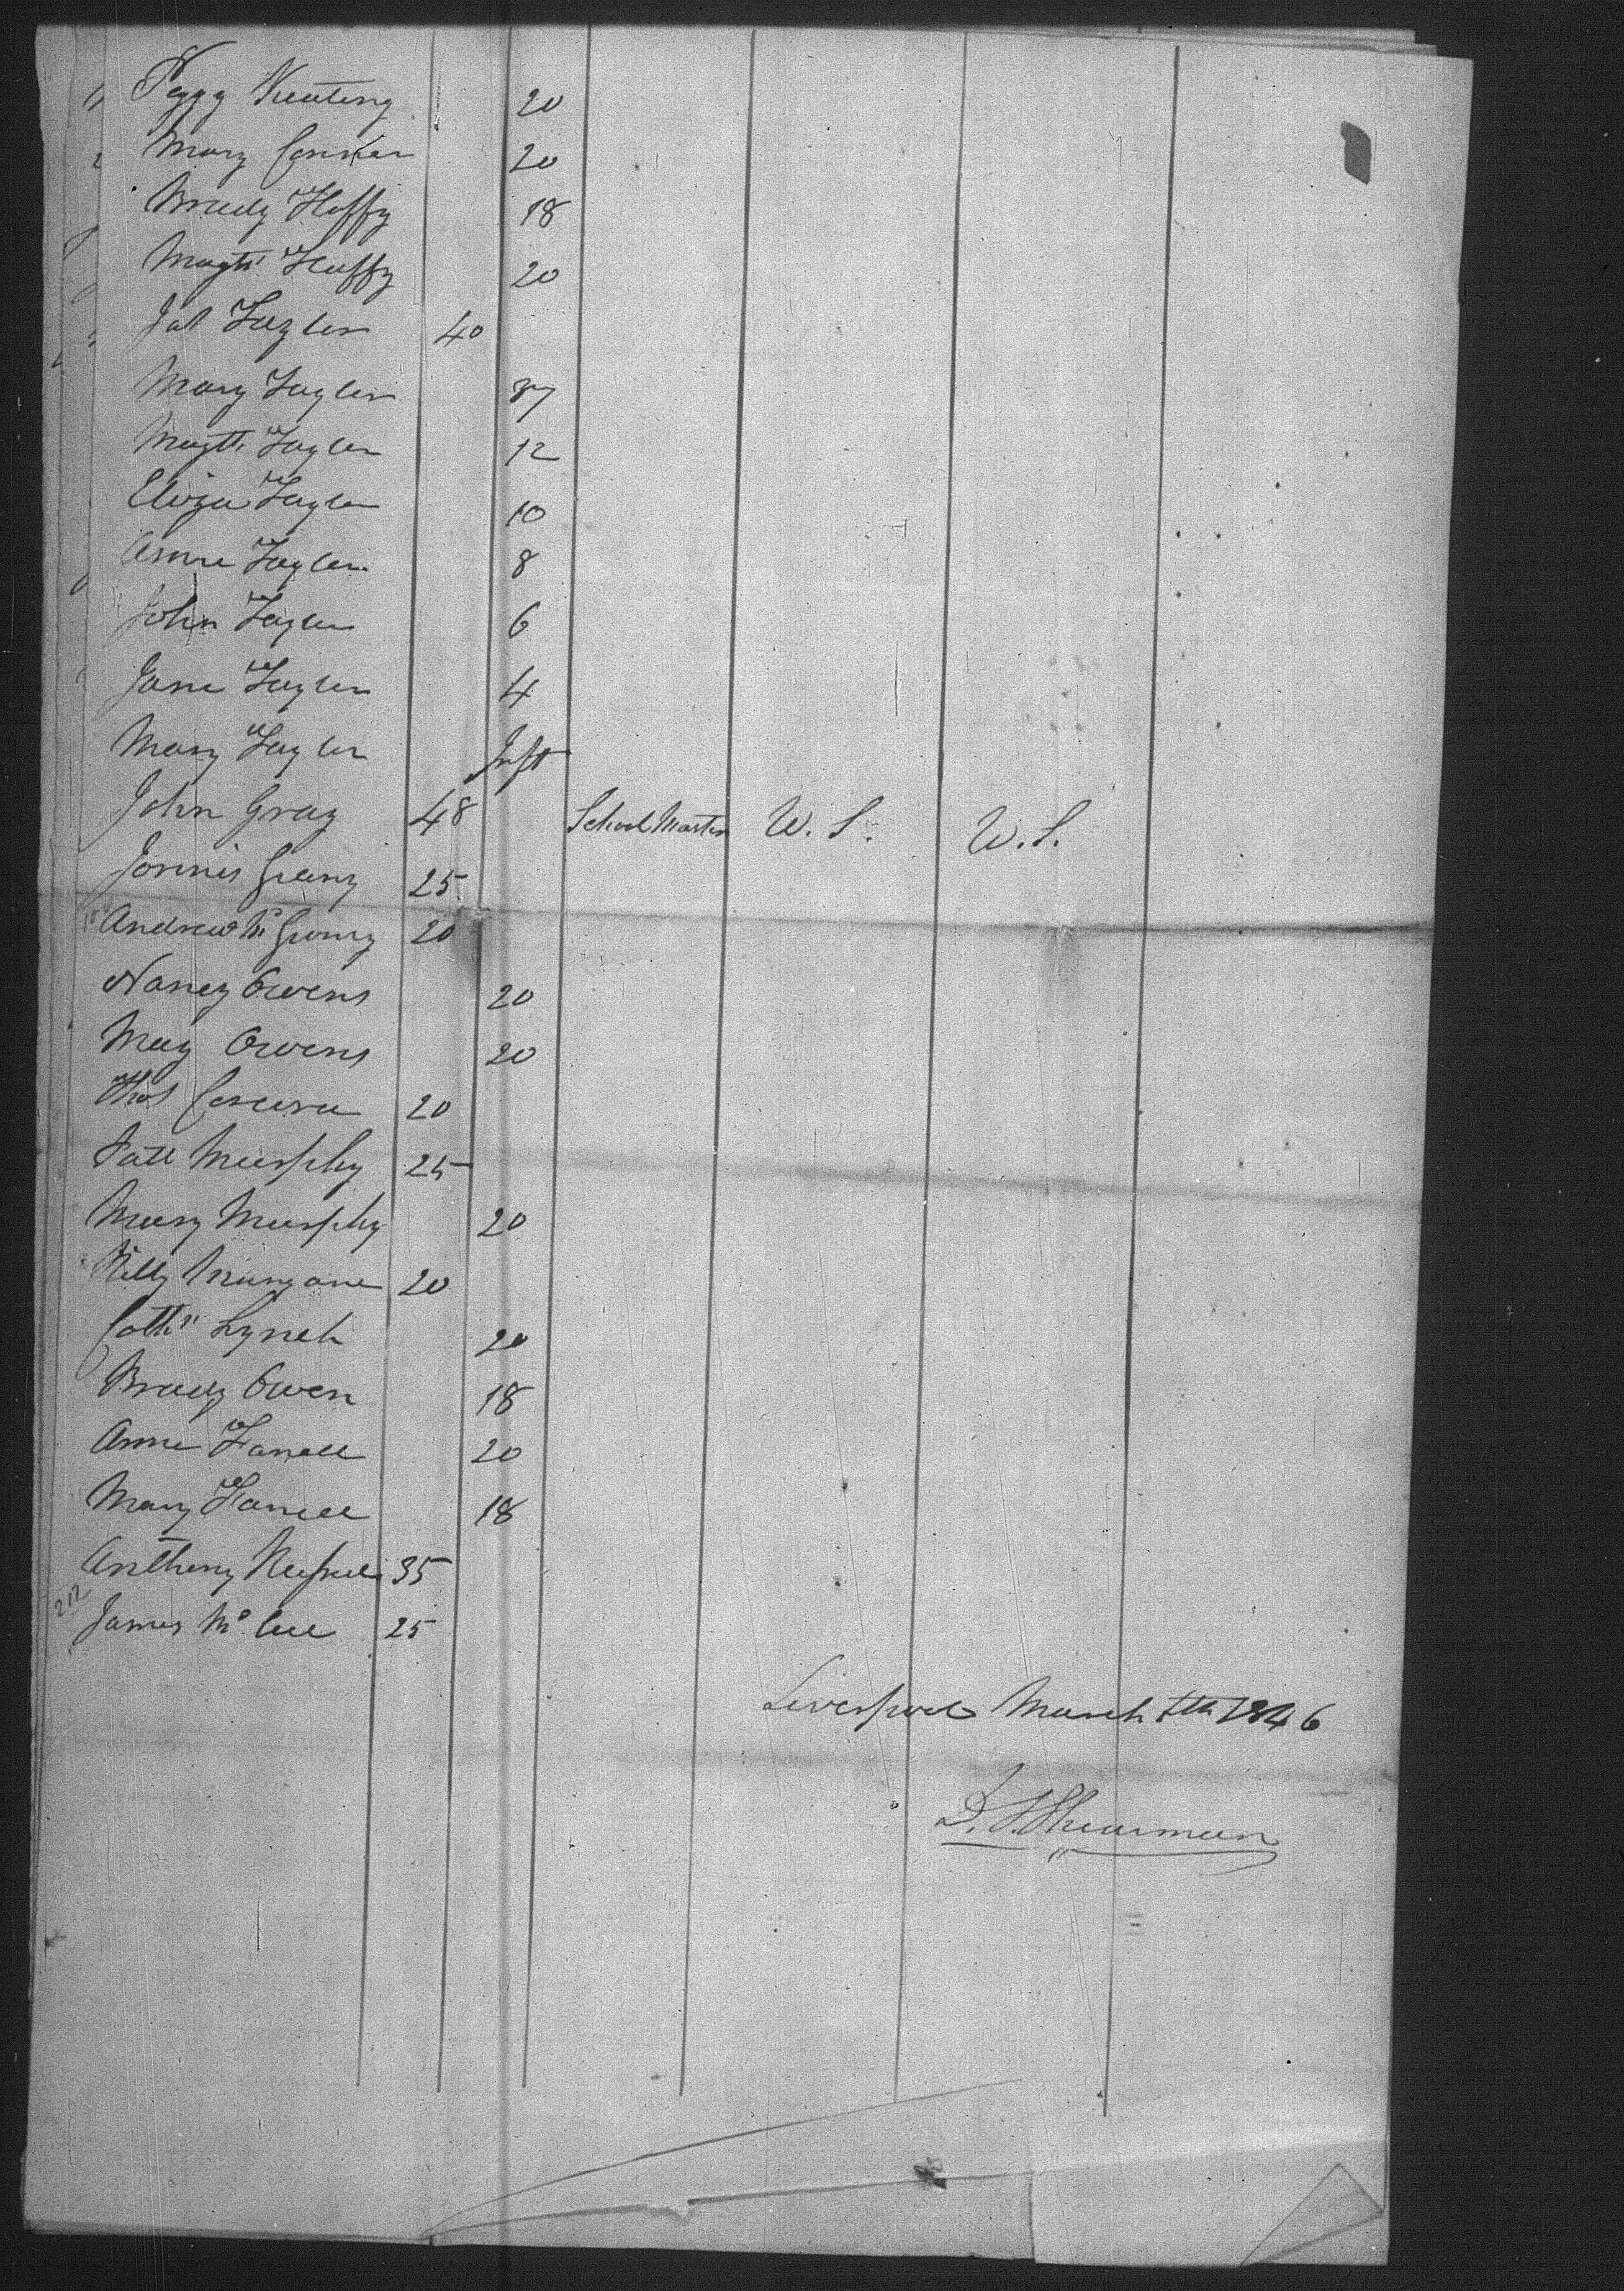 Peggy Keating 20
Mary Connor 20
Bridy Haffy 18
Magtt Haffy 20
Jas Taylor 40
Mary Taylor 37
Magtt Taylor 12
Eliza Taylor 10
Anne Taylor 8
John Taylor 6
Jane Taylor 4
Mary Taylor Inft
John Gray 48 School Master W. S. W. S.
25
Andrew 20
Nancy Owens 20
May Owens 20
Thos 20
Patt Murphy 25
Mary Murphy 20
20
Cath Lynch 20
Bridy Owen 18
Anne Farrell 20
Mary Farrell 18
Anthony Russell 35
217
James 25
Liverpool March 1846
Shearman